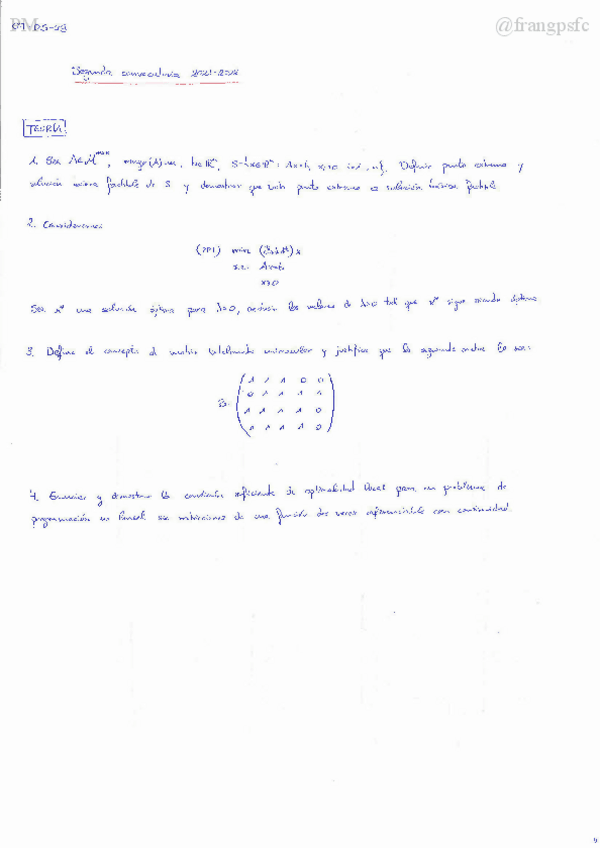 PM
@frangpsfc
Segunda convocatoria 2021-2022
TEORÍA
1. Sea A∈M^{m×n}, rango(A)=m, b∈ℝ^m, S={x∈ℝ^n: Ax=b, x_i≥0 i=1,..,n}. Definir punto extremo y
solución básica factible de S y demostrar que todo punto extremo es solución básica factible.
2. Consideremos
(PP1) min x
s.a. Ax=b
x≥0
Sea x* una solución óptima para λ=0, los valores de λ>0 tal que x* sigue siendo óptima
3. Define el concepto de matriz totalmente unimodular y justifica que la siguiente matriz lo sea:
B= ( 1 1 1 0 0
0 1 1 1 1
1 1 1 1 0
0 1 1 1 0 )
4. Enunciar y demostrar la condición suficiente de optimalidad local para un problema de
programación no lineal sin restricciones de una función dos veces diferenciable con continuidad.
9